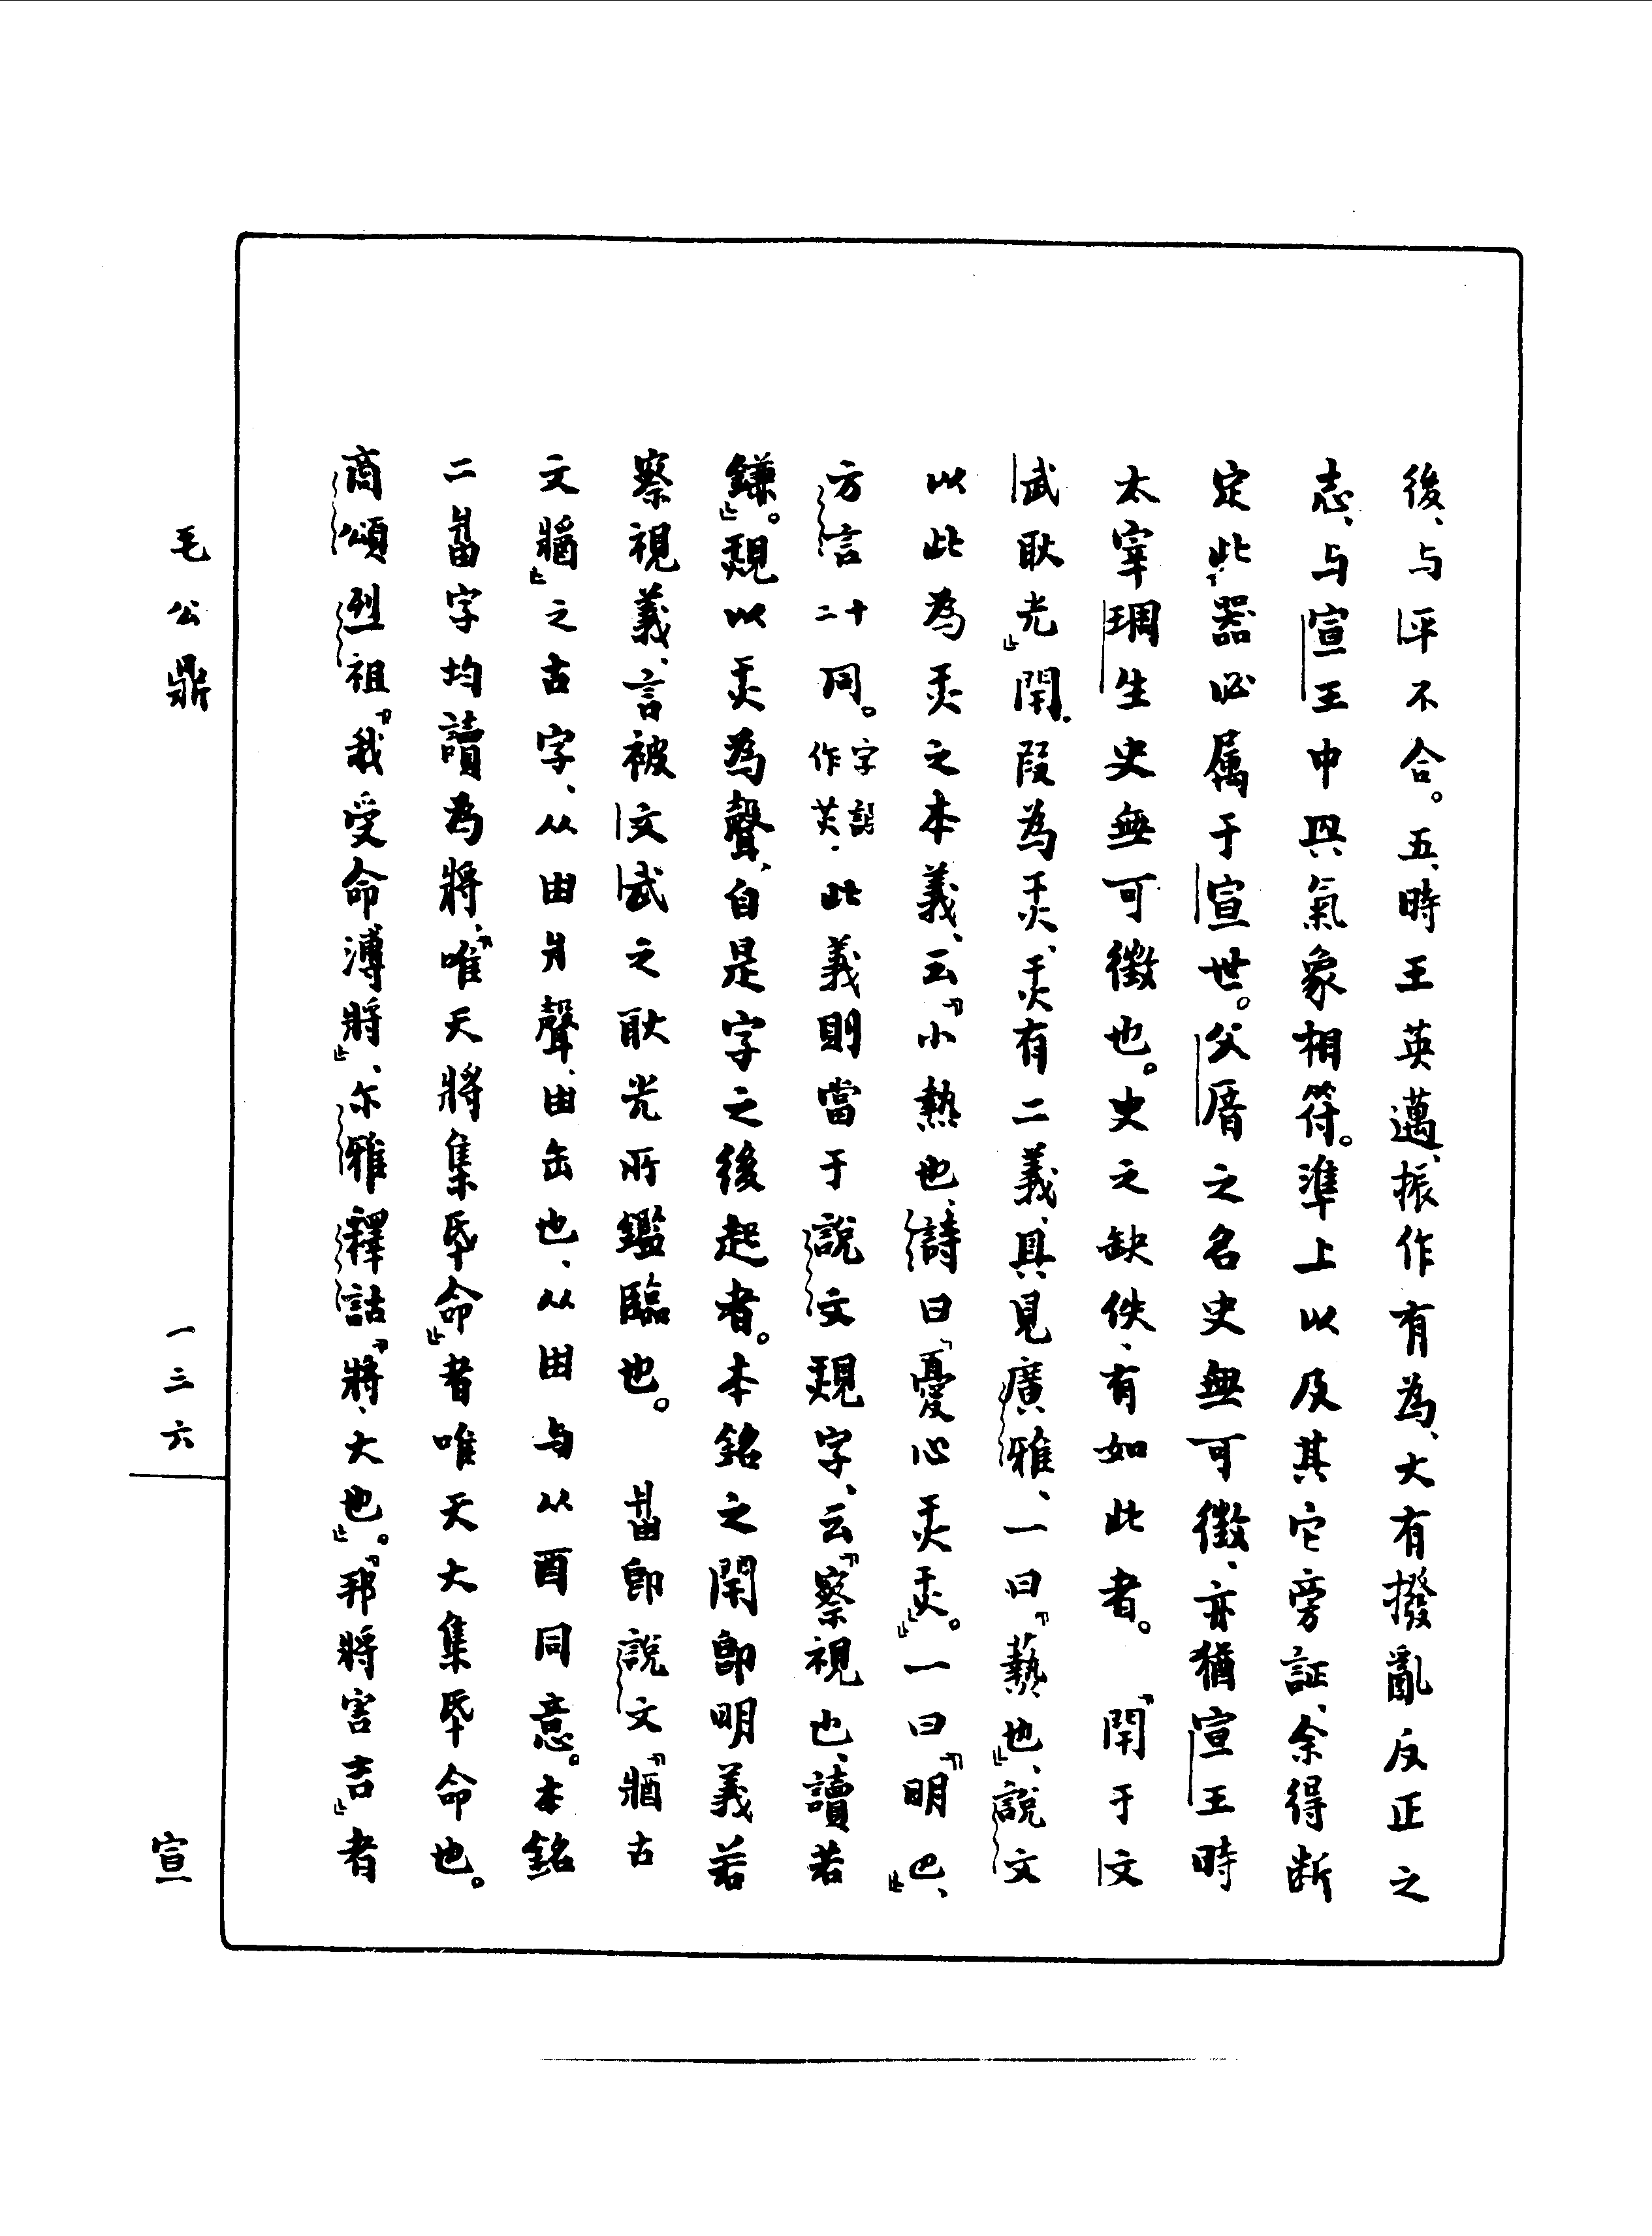 後、与平不合。五、時王英邁、振作有為、大有撥亂反正之
志、与宣王中興氣象相符。準上以及其它旁証、余得断
定此器必属于宣世。父㕆之名史無可徵、亦猶宣王時
太宰琱生史無可徵也。史之缺佚、有如此者。　『閈于文
武耿光』閈.叚為炗、炗有二義、具見廣雅、一曰『爇也』、說文
以此為炗之本義、云『小熱也、詩曰「憂心炗炗」』。一曰『明也』、
方言十二同。字誤作炎.此義則當于說文覢字、云『察視也、讀若
鎌』。覢以炗為聲、自是字之後起者。本銘之閈即明義若
察視義、言被文武之耿光所鑑臨也。　𤖕即說文『牆古
文䊢』之古字、从由爿聲、由缶也、从由与从酉同意。本銘
二𤖕字均讀為將、『唯天將集氒命』者唯天大集氒命也。
商頌烈祖『我受命溥將』、尔雅釋詁『將、大也』。『邦將害吉』者
毛公鼎
一三六
宣